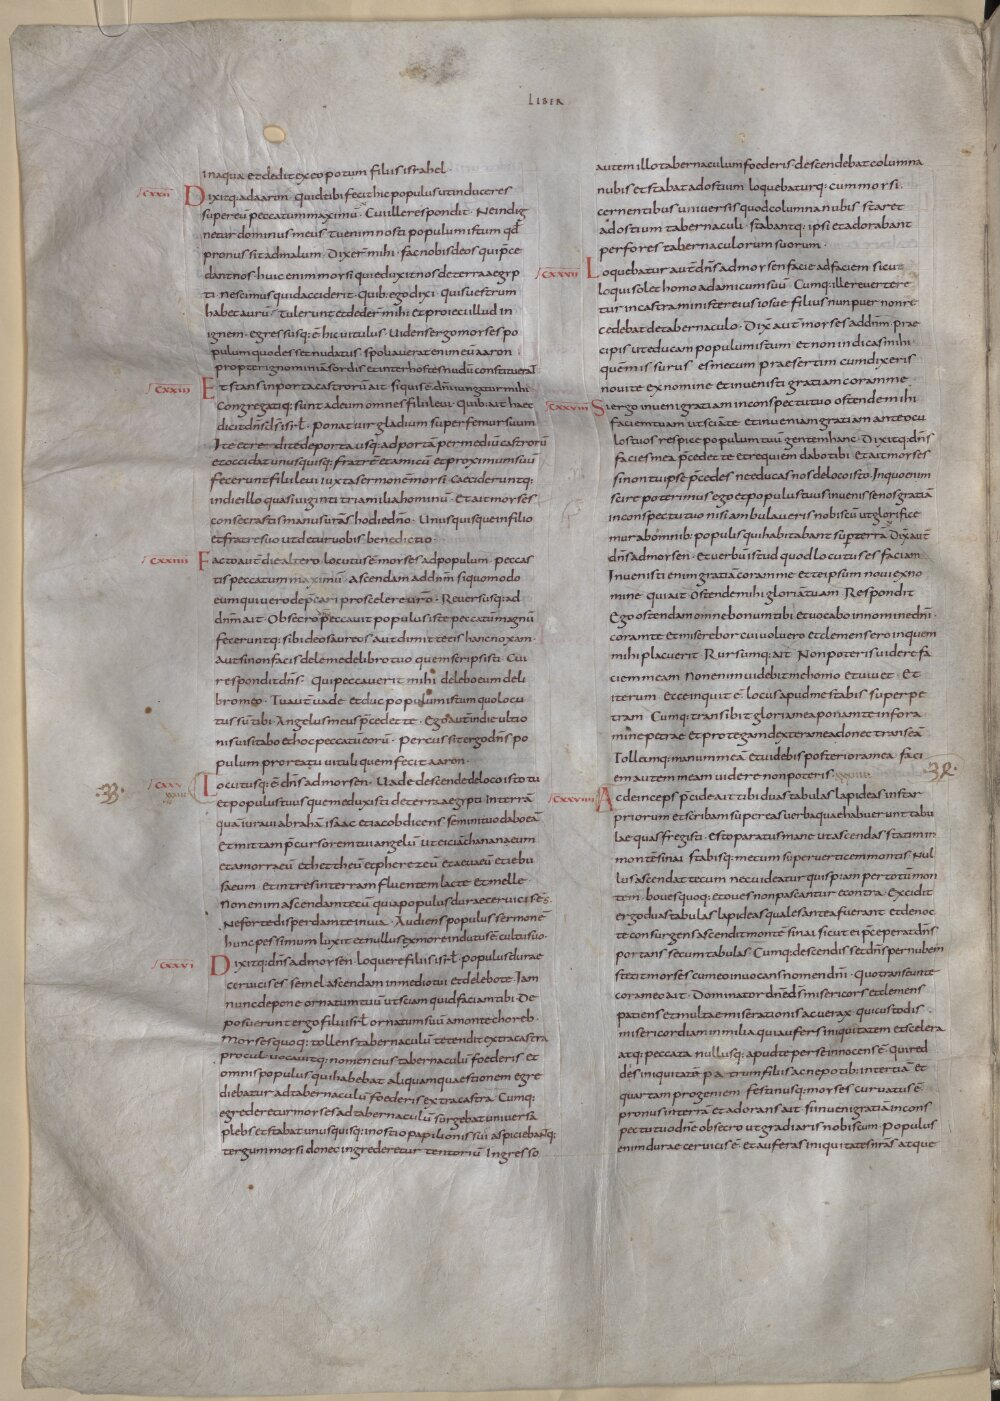 LIBER
in aqua et dedit ex eo potum filiis israhel·
CXXII Dixitq; ad aaron· quid tibi fecit hic populus ut induceres
super eū peccatum maximū· Cui ille respondit· Ne indig
netur dominus meus tu enim nosti populum istum qđ
pronus sit ad malum· Dixer̄ mihi· fac nobis deos qui p̄ce
dant nos· huic enim morsi qui eduxit nos de terra aegyp
ti· nescimus quid acciderit· Quib; ego dixi· Quis uestrum
habet aurū· Tulerunt et deder̄ mihi et proieci illud in
ignem· egressusq; ē hic vitulus· Uidens ergo moyses po
pulum quod esset nudatus· spoliauerat enim eū aaron
propter ignominiā sordis et inter hostes nudū constituerat
CXXIII Et stans in porta castrorū ait· si quis ē dn̄i iungatur mihi·
Congregatiq; sunt ad eum omnes filii leui· Quib; ait haec
dicit dn̄s d̄s isr̄l· ponat uir gladium super femur suum
Ite et redite de porta usq; ad portā per mediū castrorū
et occidat unusquisq; fratrē et amicū et proximum suū
fecerunt filii leui iuxta sermonē morsi· Caecideruntq;
in die illo quasi uiginti tria milia hominū· Et ait moyses
consecrastis manus urās hodie dn̄o· Unusquisque in filio
et fratre suo ut detur uobis benedictio·
CXXIIII Facto aut̄ die altero locutus ē moyses ad populum· peccas
tis peccatum maximū· ascendam ad dn̄m si quomodo
eum quiuero dep̄cari pro scelere ur̄o· Reuersusq; ad
dn̄m ait· Obsecro peccauit populus iste peccatū magnū
feceruntq; sibi deos aureos aut dimitte eis hanc noxam·
Aut si non facis dele me de libro tuo quem scripsisti· Cui
respondit dn̄s· Qui peccauerit mihi delebo eum de li
bro meo· Tu aut̄ uade et duc populum istum quo locu
tus sū tibi· Angelus meus p̄cedet te· Ego aut̄ in die ultio
nis uisitabo et hoc peccatū eorū· Percussit ergo dn̄s po
pulum pro reatu uituli quem fecit aaron·
·33· CXXV Locutusq; ē dn̄s ad moysen· Uade descende de loco isto tu
et populus tuus quem eduxisti de terra aegypti In terrā
quā iuraui abrahā isaac et iacob dicens semini tuo dabo eā
Et mittam p̄cursorem tui angelū ut eiciā chananaeum
et amorraeū et hettheū et pherezeū et aeuaeū et iebu
saeum et intres in terram fluentem lacte et melle·
Non enim ascendam tecū quia populus durae ceruicis ēs
Ne forte disperdam te in uia· Audiens populus sermonē
hunc pessimum luxit et nullus ex more indutus ē cultu suo·
CXXVI Dixitq; dn̄s ad moysen· loquere filiis isr̄l· populus durae
ceruicis es semel ascendam in medio tui et delebo te· Iam
nunc depone ornatum tuū ut sciam quid faciam tibi· De
posuerunt ergo filii isr̄l ornatum suū a monte choreb·
Morses quoq; tollens tabernaculū tetendit extra castra
procul· uocauitq; nomen eius tabernaculū foederis et
omnis populus qui habebat aliquam quaestionem egre
diebatur ad tabernaculū foederis extra castra· Cumq;
egrederetur moyses ad tabernaculū surgebat uniuersa
plebs et stabat unusquisq; in ostio papilionis sui aspiciebantq;
tergum morsi donec ingrederetur tentoriū Ingresso
autem illo tabernaculum foederis descendebat columna
nubis et stabat ad ostium loquebaturq; cum morsi·
cernentibus uniuersis quod columna nubis staret
ad ostium tabernaculi· stabantq; ipsi et adorabant
per fores tabernaculorum suorum·
CXXVII Loquebatur aut̄ dn̄s ad moysen facie ad faciem sicut
loqui solet homo ad amicum suū· Cumq; ille reuertere
tur in castra minister eius iosue filius nun puer non re
cedebat de tabernaculo· Dix̄ aut̄ moyses ad dn̄m· prae
cipis ut educam populum istum et non indicas mihi
quem missurus es mecum praesertim cum dixeris
noui te ex nomine et inuenisti gratiam coram me·
CXXVIII Si ergo inueni gratiam in conspectu tuo ostende mihi
faciem tuam ut sciā te et inueniam gratiam ante ocu
los tuos respice populum tuū gentem hanc· Dixitq; dn̄s
facies mea p̄cedet te et requiem dabo tibi· et ait moyses
si non tu ipse p̄cedes ne educas nos de loco isto· In quo enim
scire poterimus ego et populus tuus inuenisse nos gratiā
in conspectu tuo nisi ambulaueris nobiscū ut glorifice
mur ab omnib; populis qui habitabant sup̄ terrā Dix̄ aut̄
dn̄s ad moysen· Et uerbū istud quod locutus es faciam
Inuenisti enim gratiā coram me et te ipsum noui ex no
mine· qui ait· Ostende mihi gloriā tuam· Respondit
Ego ostendam omne bonum tibi et uocabo in nomine dn̄i·
coram te et miserebor cui uoluero et clemens ero in quem
mihi placuerit· Rursumq; ait· Non poteris uidere fa
ciem meam· Non enim uidebit me homo et uiuet· Et
iterum· Ecce inquit ē locus apud me stabis super pe
tram· Cumq; transibit gloria mea ponam te in fora
mine petrae et protegam dextera mea donec transeā
Tollamq; manum meā et uidebis posteriora mea· faci
em autem meam uidere non poteris·
CXXVIIII Ac deinceps p̄cide ait tibi duas tabulas lapideas instar
priorum et scribam super eas uerba quae habuerunt tabu
lae quas fregisti· Esto paratus mane ut ascendas statim in
montē sinai· stabisq; mecum super uerticem montis· Nul
lus ascendat tecum nec uideatur quispiam per totū mon
tem· boues quoq; et oues non pascantur e contra· Excidit
ergo duas tabulas lapideas quales antea fuerant· et de noc
te consurgens ascendit montē sinai sicut ei p̄ceperat dn̄s
portans secum tabulas· Cumq; descendisset dn̄s per nubem
stetit moyses cum eo inuocans nomen dn̄i· Quo transeunte
coram eo ait· Dominator dn̄e d̄s misericors et clemens
patiens et multae miserationis ac uerax· qui custodis
misericordiam in milia qui aufers iniquitatem et scelera
atq; peccata nullusq; apud te per se innocens ē· Qui red
des iniquitatē patrum filiis ac nepotib; in tertiā et
quartam progeniem· festinusq; moyses curuatus ē
pronus in terrā et adorans ait· si inueni gratiā in cons
pectu tuo dn̄e obsecro ut gradiaris nobiscum· Populus
enim durae ceruicis ē· et auferas iniquitates nrās atque